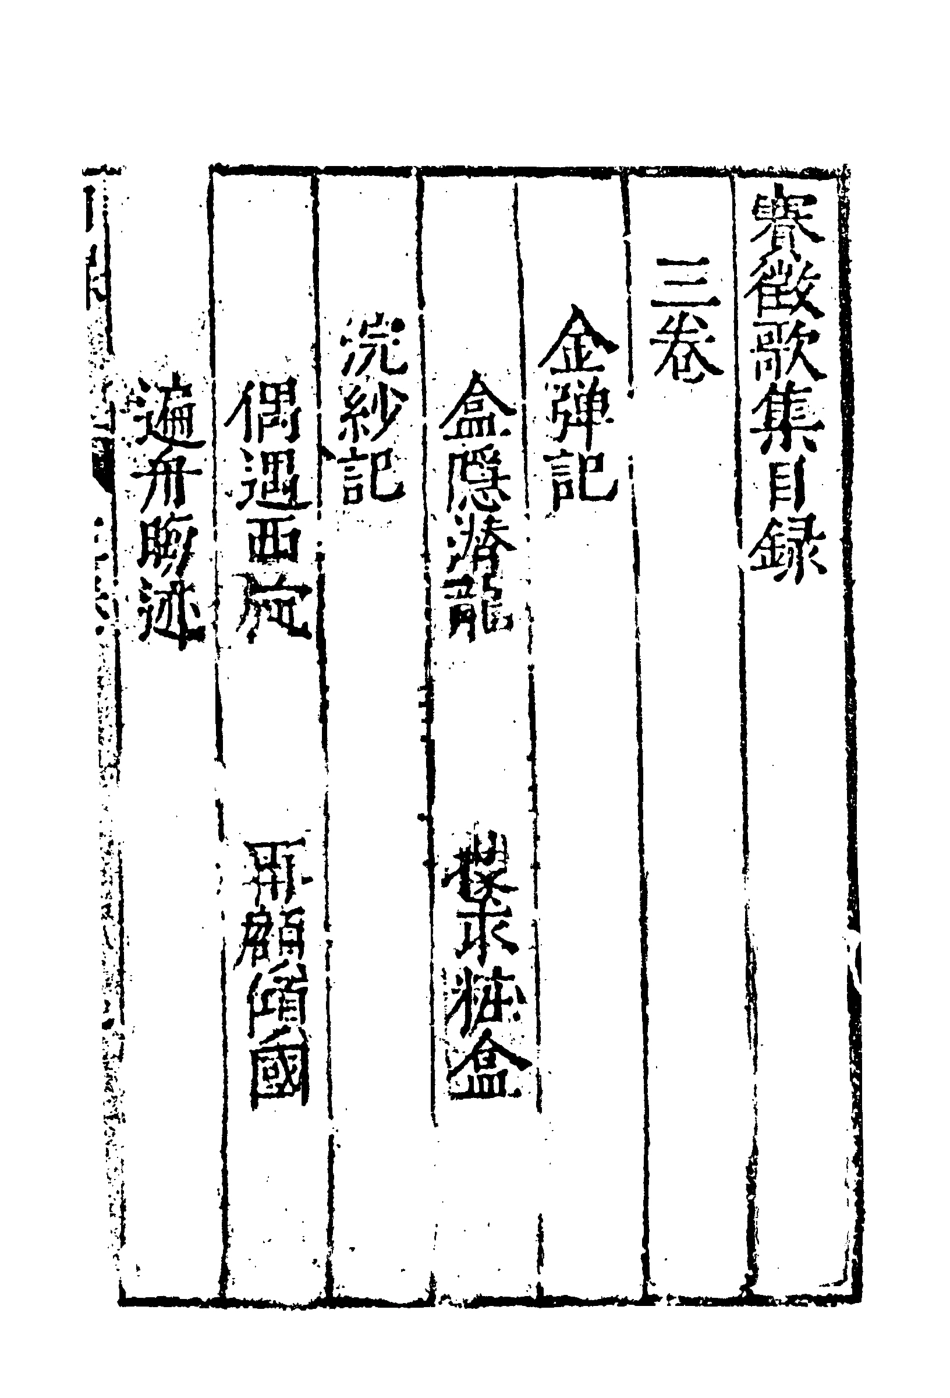 賽徵歌集目録
三卷
金弾記
盒隱潜龍　搜求粧盒
浣紗記
偶遇西施　再顧傾國
遍舟晦迹